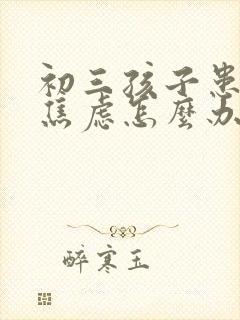 初三孩子患
焦虑怎麽办
醉寒玉